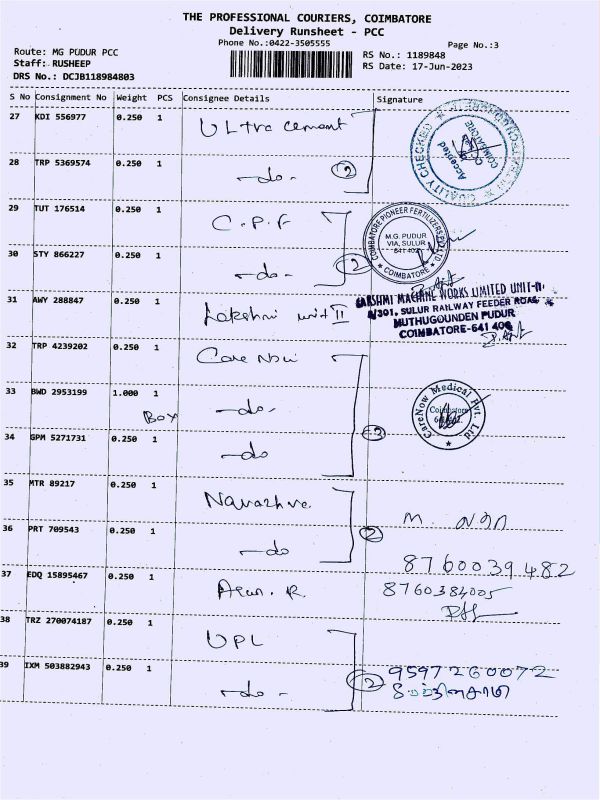 THE PROFESSIONAL COURIERS, COIMBATORE
Delivery Runsheet - PCC
Phone No.:0422-3505555
Page No.:3
Route: MG PUDUR PCC
Staff: RUSHEEP
DRS No.: DCJB118984803
RS No.: 1189848
RS Date: 17-Jun-2023
S No Consignment No Weight PCS Consignee Details Signature
27 KDI 556977 0.250 1 ULtra cement
28 TRP 5369574 0.250 1 -do- 2
QUALITY CHECKED
Accepted
COIMBATORE
29 TUT 176514 0.250 1 C.P.F
30 STY 866227 0.250 1 -do- 2
COIMBATORE PIONEER FERTILIZERS PVT LTD
M.G. PUDUR
VIA, SULUR
641 402
* COIMBATORE *
31 AWY 288847 0.250 1 Lakshmi unit II
LAKSHMI MACHINE WORKS LIMITED UNIT-II
A/301, SULUR RAILWAY FEEDER ROAD
MUTHUGOUNDEN PUDUR
COIMBATORE-641 406
32 TRP 4239202 0.250 1 Care Now
33 BWD 2953199 1.000 1 -do-
BOX
34 GPM 5271731 0.250 1 -do 3
CareNow Medical Pvt. Ltd
Coimbatore
35 MTR 89217 0.250 1
36 PRT 709543 0.250 1 -do 2
M.
8760039482
37 EDQ 15895467 0.250 1 Arun. R.
8760384005
38 TRZ 270074187 0.250 1 UPL
39 IXM 503882943 0.250 1 -do- 2
9597260072